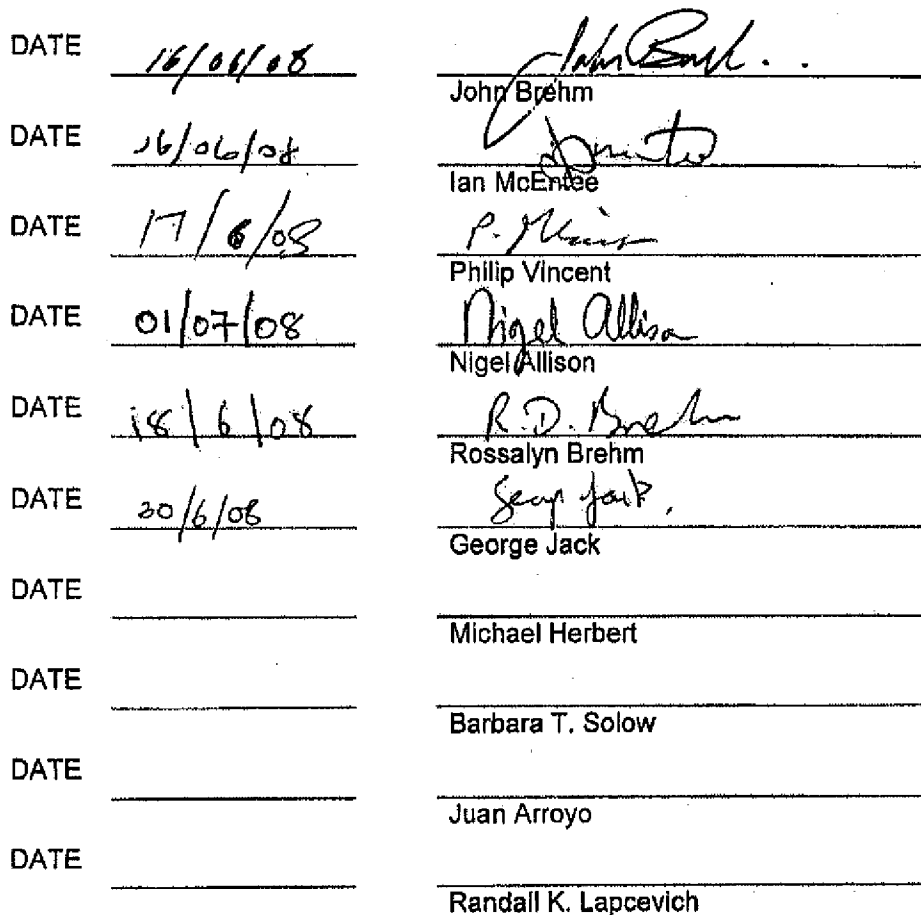 DATE 16/06/08 John Brehm
John Brehm
DATE 16/06/08
Ian McEntee
DATE 17/6/08
Philip Vincent
DATE 01/07/08 Nigel Allison
Nigel Allison
DATE 18/6/08 R.D. Brehm
Rossalyn Brehm
DATE 30/6/08
George Jack
DATE
Michael Herbert
DATE
Barbara T. Solow
DATE
Juan Arroyo
DATE
Randall K. Lapcevich